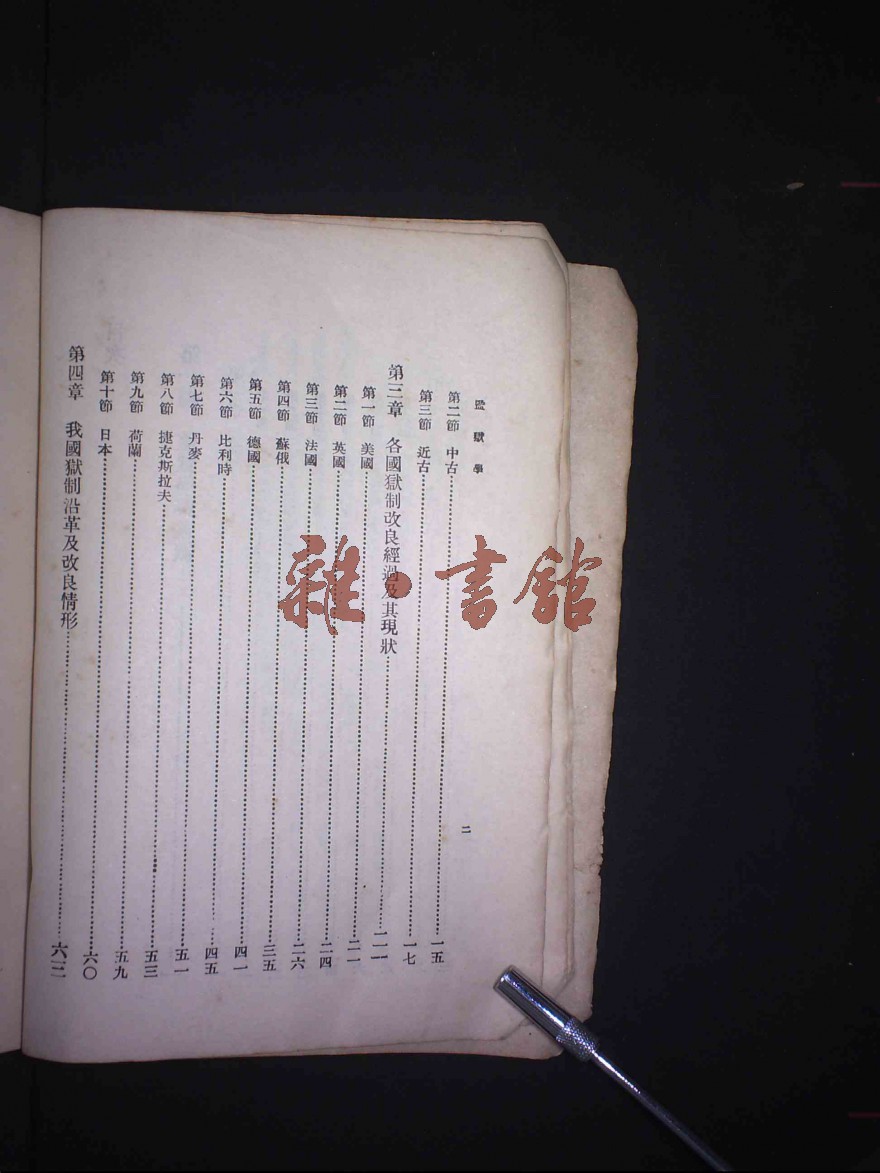 監獄學
二
第二節 中古……一五
第三節 近古……一七
第三章 各國獄制改良經過及其現狀……二一
第一節 美國……二一
第二節 英國……二四
第三節 法國……二六
第四節 蘇俄……三五
第五節 德國……四一
第六節 比利時……四五
第七節 丹麥……五一
第八節 捷克斯拉夫……五三
第九節 荷蘭……五九
第十節 日本……六〇
第四章 我國獄制沿革及改良情形……六三
雜·書館